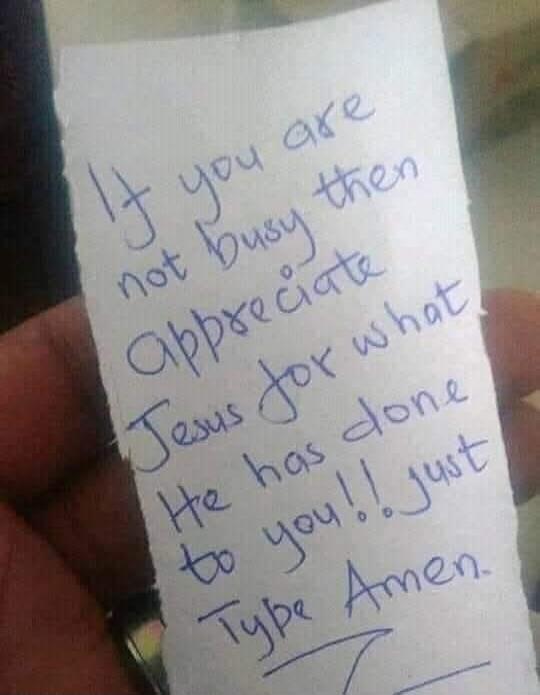 If you are
not busy then
appreciate
Jesus for what
He has done
to you!! just
Type Amen.